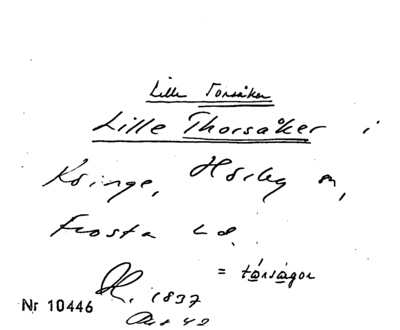 Lille Torsåker
Lille Thorsåker i
Kvinge, Hörby sn,
Frosta hd.
= társágor
R. 1837
Nr 10446
Akt 42